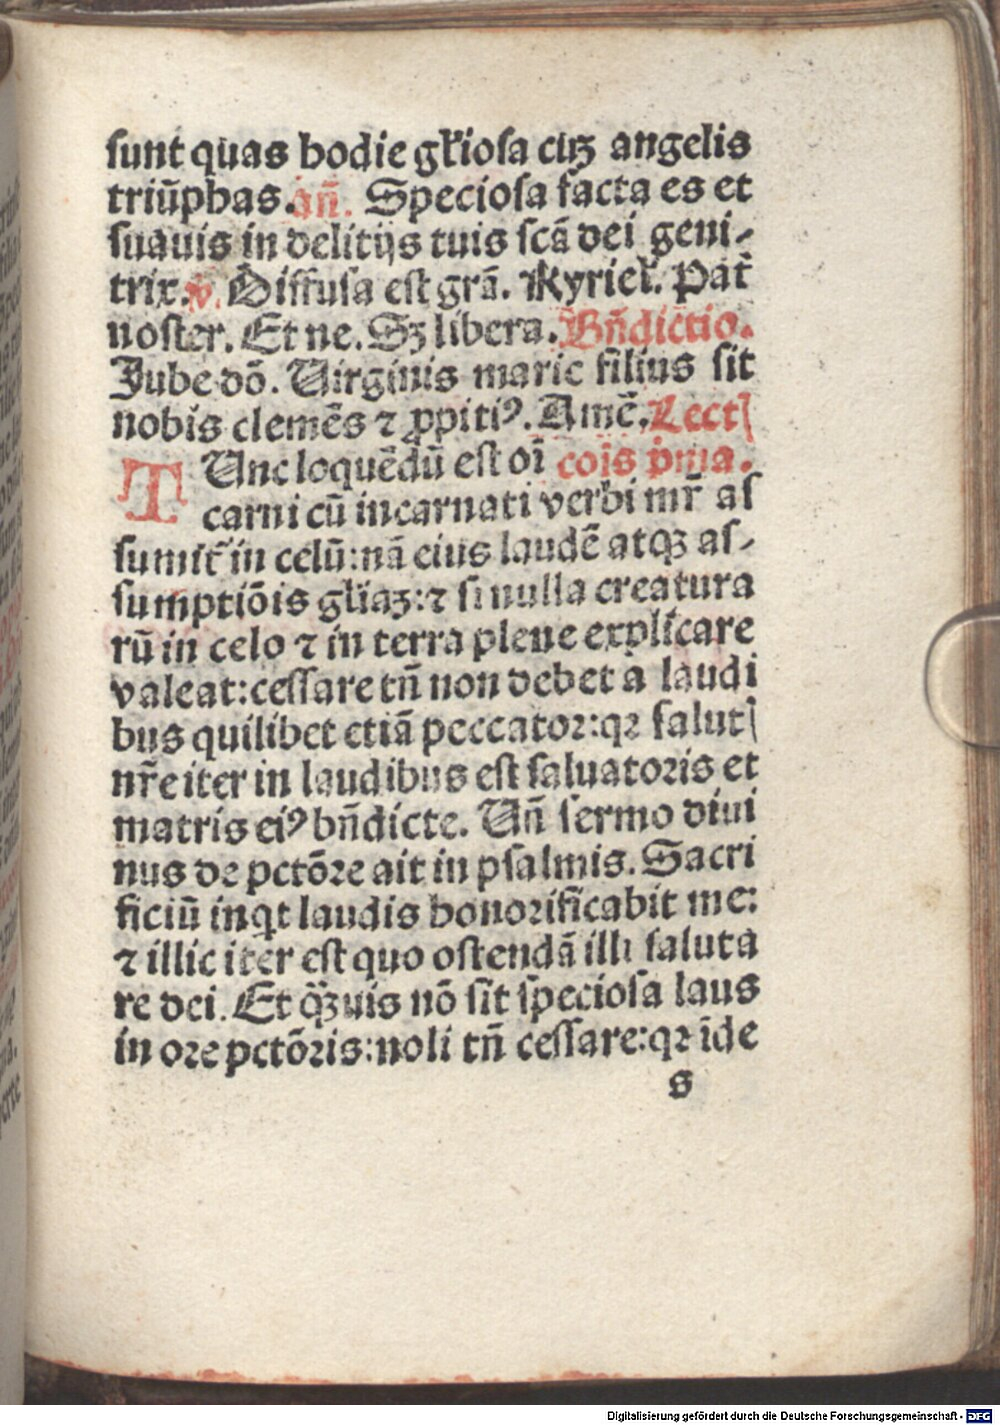 sunt quas hodie gl̄iosa cuꝫ angelis
triūphas. an̄. Speciosa facta es et
suauis in delitijs tuis scā dei geni-
trix. v. Diffusa est grā. Kyriel̄. Pat̄
noster. Et ne. Sꝫ libera. Bn̄dictio.
Jube dō. Uirginis marie filius sit
nobis clemēs ⁊ ꝓpitiꝰ. Amē. Lectꝭ
TUnc loquēdū est oī cōis p̄ma.
carni cū incarnati verbi mr̄ as
sumit̄ in celū: nā eius laudē atqꝫ as-
sumptiōis gl̄iaꝫ: ⁊ si nulla creatura
rū in celo ⁊ in terra plene expl̄icare
valeat: cessare tn̄ non debet a laudi
bus quilibet etiā peccator: qꝛ salutꝭ
nr̄e iter in laudibus est saluatoris et
matris eiꝰ bn̄dicte. Un̄ sermo diui
nus de pctōre ait in psalmis. Sacri
ficiū inqt laudis honorificabit me:
⁊ illic iter est quo ostendā illi saluta
re dei. Et qꝫ̄uis nō sit speciosa laus
in ore pctōris: noli tn̄ cessare: qꝛ īde
s
Digitalisierung gefördert durch die Deutsche Forschungsgemeinschaft - DFG